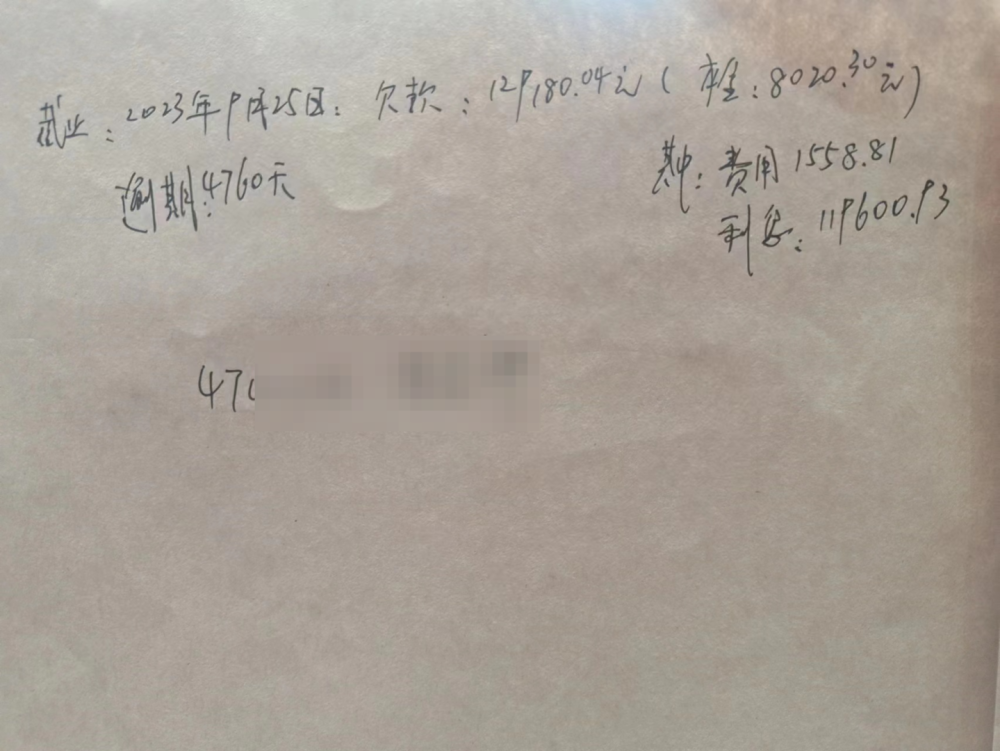 截止：2023年9月25日：欠款：129180.04元（本金：8020.30元）
其中：费用1558.81
逾期：4760天
利息：119600.93
470